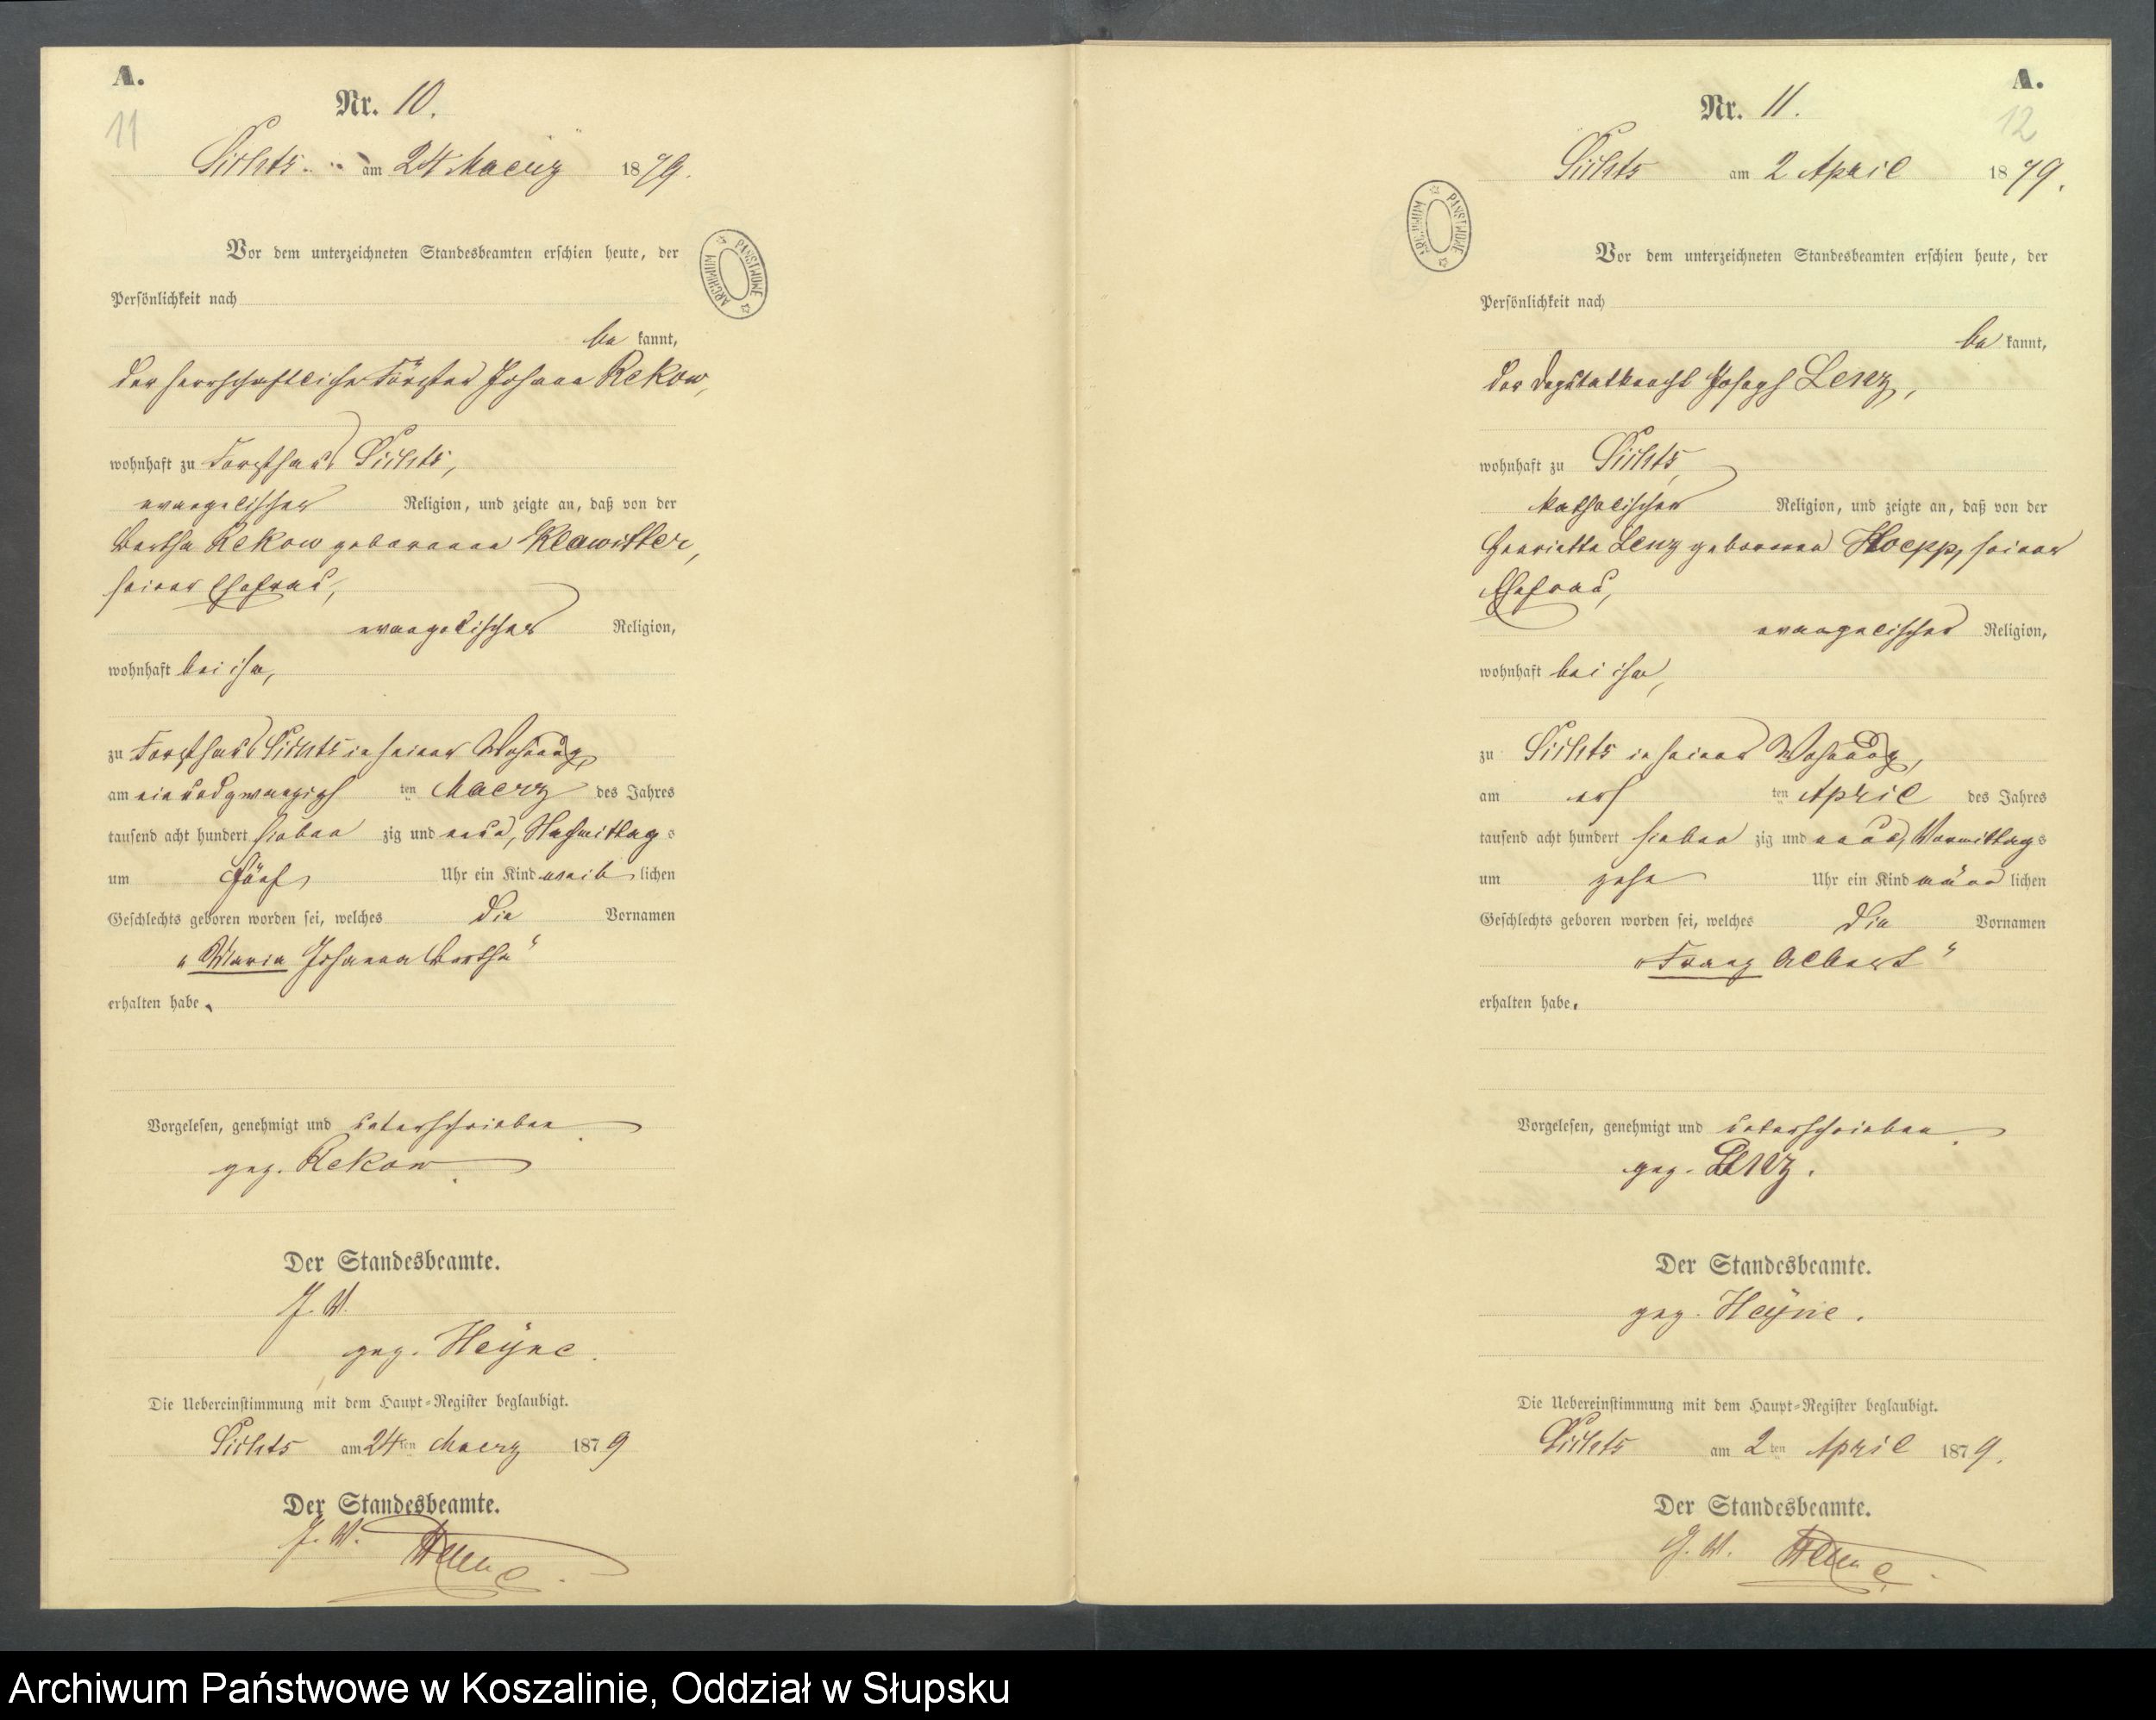 A.
11
Nr. 10.
am 24 Maerz 1879.
Vor dem unterzeichneten Standesbeamten erschien heute, der
Persönlichkeit nach
be kannt,
der herrschaftliche Förster Johann Rekow,
wohnhaft zu Forsthaus
evangelischer Religion, und zeigte an, daß von der
Bertha Rekow geborenen Klawitter,
seiner Ehefrau,
evangelischer Religion,
wohnhaft bei ihm,
zu Forsthaus in seiner Wohnung,
am einundzwanzigsten Maerz des Jahres
tausend acht hundert siebenzig und neun, Nachmittags
um fünf Uhr ein Kind weiblichen
Geschlechts geboren worden sei, welches die Vornamen
„Maria Johanna Bertha“
erhalten habe.
Vorgelesen, genehmigt und unterschrieben
gez. Rekow.
Der Standesbeamte.
J. V.
gez. Heyne.
Die Uebereinstimmung mit dem Haupt-Register beglaubigt.
am 24ten Maerz 1879
Der Standesbeamte.
J. V. Heyne.
ARCHIWUM PAŃSTWOWE
A.
12
Nr. 11.
am 2 April 1879.
Vor dem unterzeichneten Standesbeamten erschien heute, der
Persönlichkeit nach
be kannt,
der Deputatknecht Joseph Lenz,
wohnhaft zu
katholischer Religion, und zeigte an, daß von der
Henriette Lenz geborenen Hoepp, seiner
Ehefrau,
evangelischer Religion,
wohnhaft bei ihm,
zu in seiner Wohnung,
am ersten April des Jahres
tausend acht hundert siebenzig und neun, Vormittags
um zehn Uhr ein Kind männlichen
Geschlechts geboren worden sei, welches die Vornamen
„Franz Albert“
erhalten habe.
Vorgelesen, genehmigt und unterschrieben.
gez. Lenz.
Der Standesbeamte.
gez. Heyne.
Die Uebereinstimmung mit dem Haupt-Register beglaubigt.
am 2ten April 1879.
Der Standesbeamte.
J. V. Heyne.
ARCHIWUM PAŃSTWOWE
Archiwum Państwowe w Koszalinie, Oddział w Słupsku